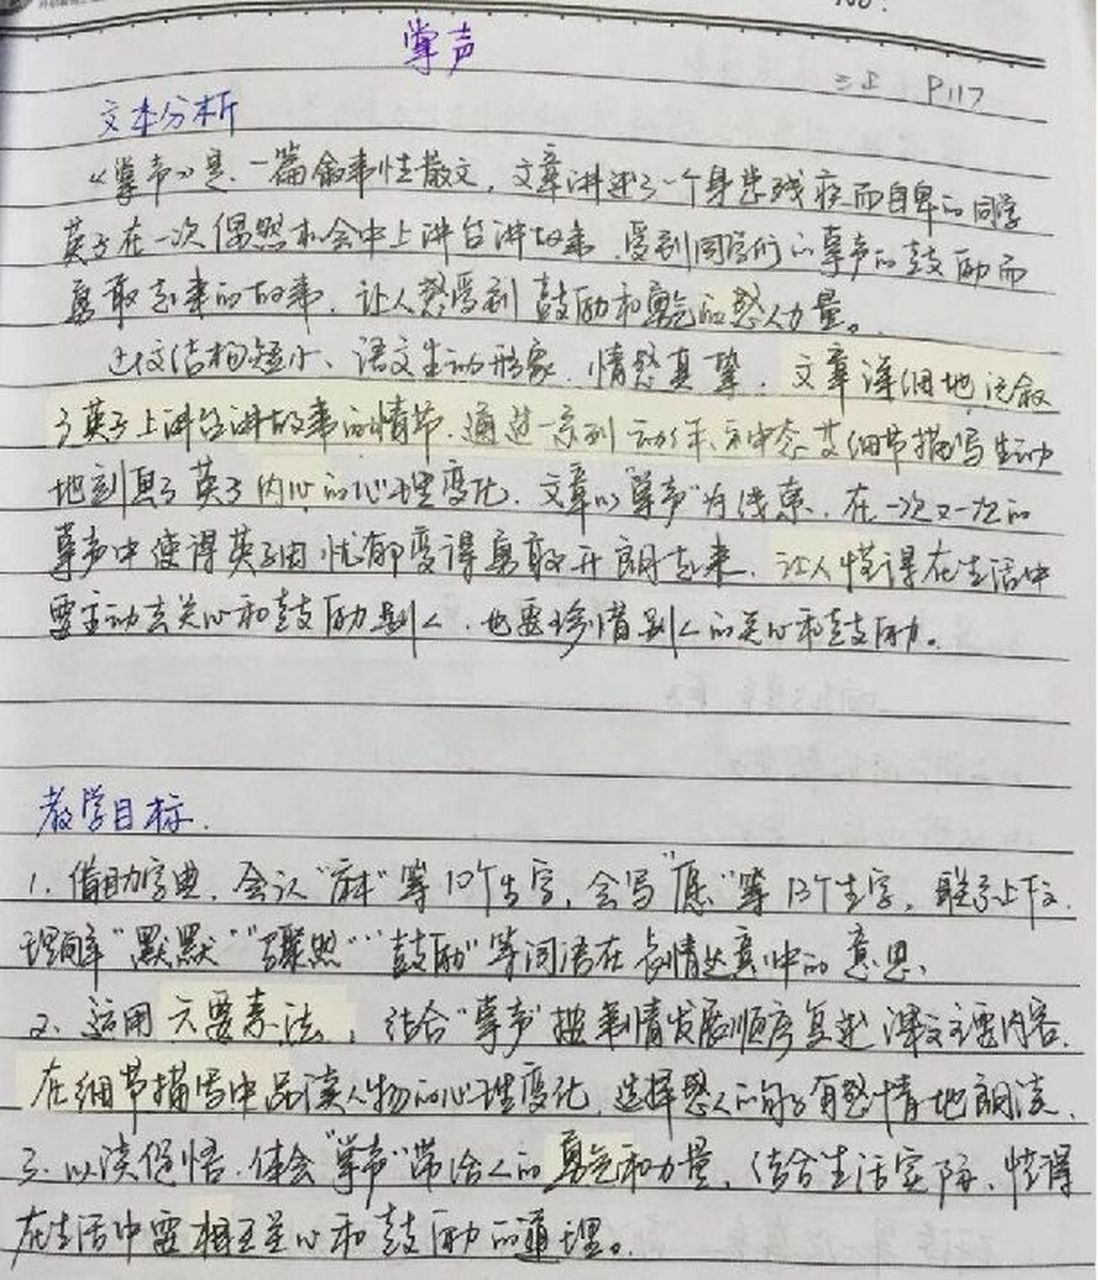 No.
掌声
三上 P117
文本分析
《掌声》是一篇叙事性散文，文章讲述了一个身患残疾而自卑的同学
英子在一次偶然机会中上讲台讲故事，受到同学们的掌声的鼓励而
勇敢起来的故事，让人感受到鼓励和勇气的感人力量。
这文结构短小、语文生动形象，情感真挚，文章详细地记叙
了英子上讲台讲故事的情节，通过一系列动作、神态等细节描写生动
地刻画了英子内心的心理变化，文章以"掌声"为线索，在一次又一次的
掌声中使得英子由忧郁变得勇敢开朗起来，让人懂得在生活中
要主动去关心和鼓励别人，也要珍惜别人的关心和鼓励。
教学目标.
1. 借助字典，会认"麻"等10个生字，会写"愿"等13个生字，联系上下文，
理解"默默""骤然""鼓励"等词语在表情达意中的意思、
2、运用六要素法，结合"掌声"按事情发展顺序复述课文主要内容，
在细节描写中品读人物的心理变化，选择感人的句子有感情地朗读，
3、以读促悟，体会"掌声"带给人的勇气和力量，结合生活实际，懂得
在生活中要相互关心和鼓励的道理。